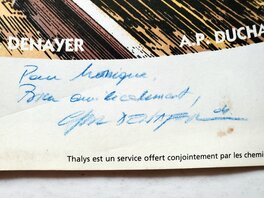 DENAYER A.P. DUCHA
Pour Monique,
Bien amicalement,
DENAYER
Thalys est un service offert conjointement par les chemi